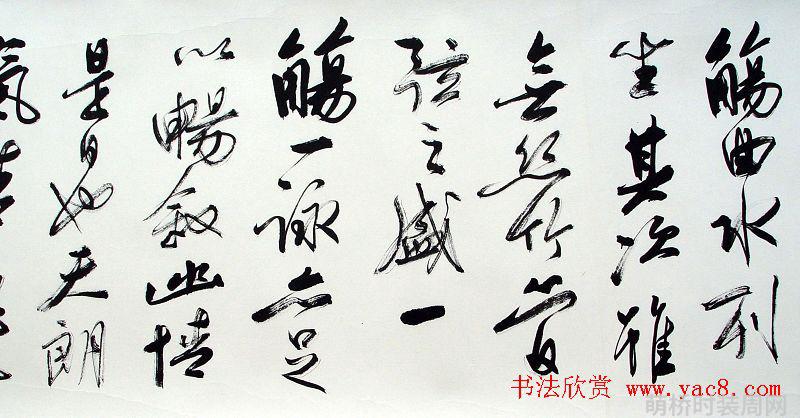 觴曲水列
坐其次雖
無丝竹管
弦之盛一
觴一詠亦足
以暢叙幽情
是日也天朗
氣清惠
书法欣赏 www.yac8.com
萌桥时装周网